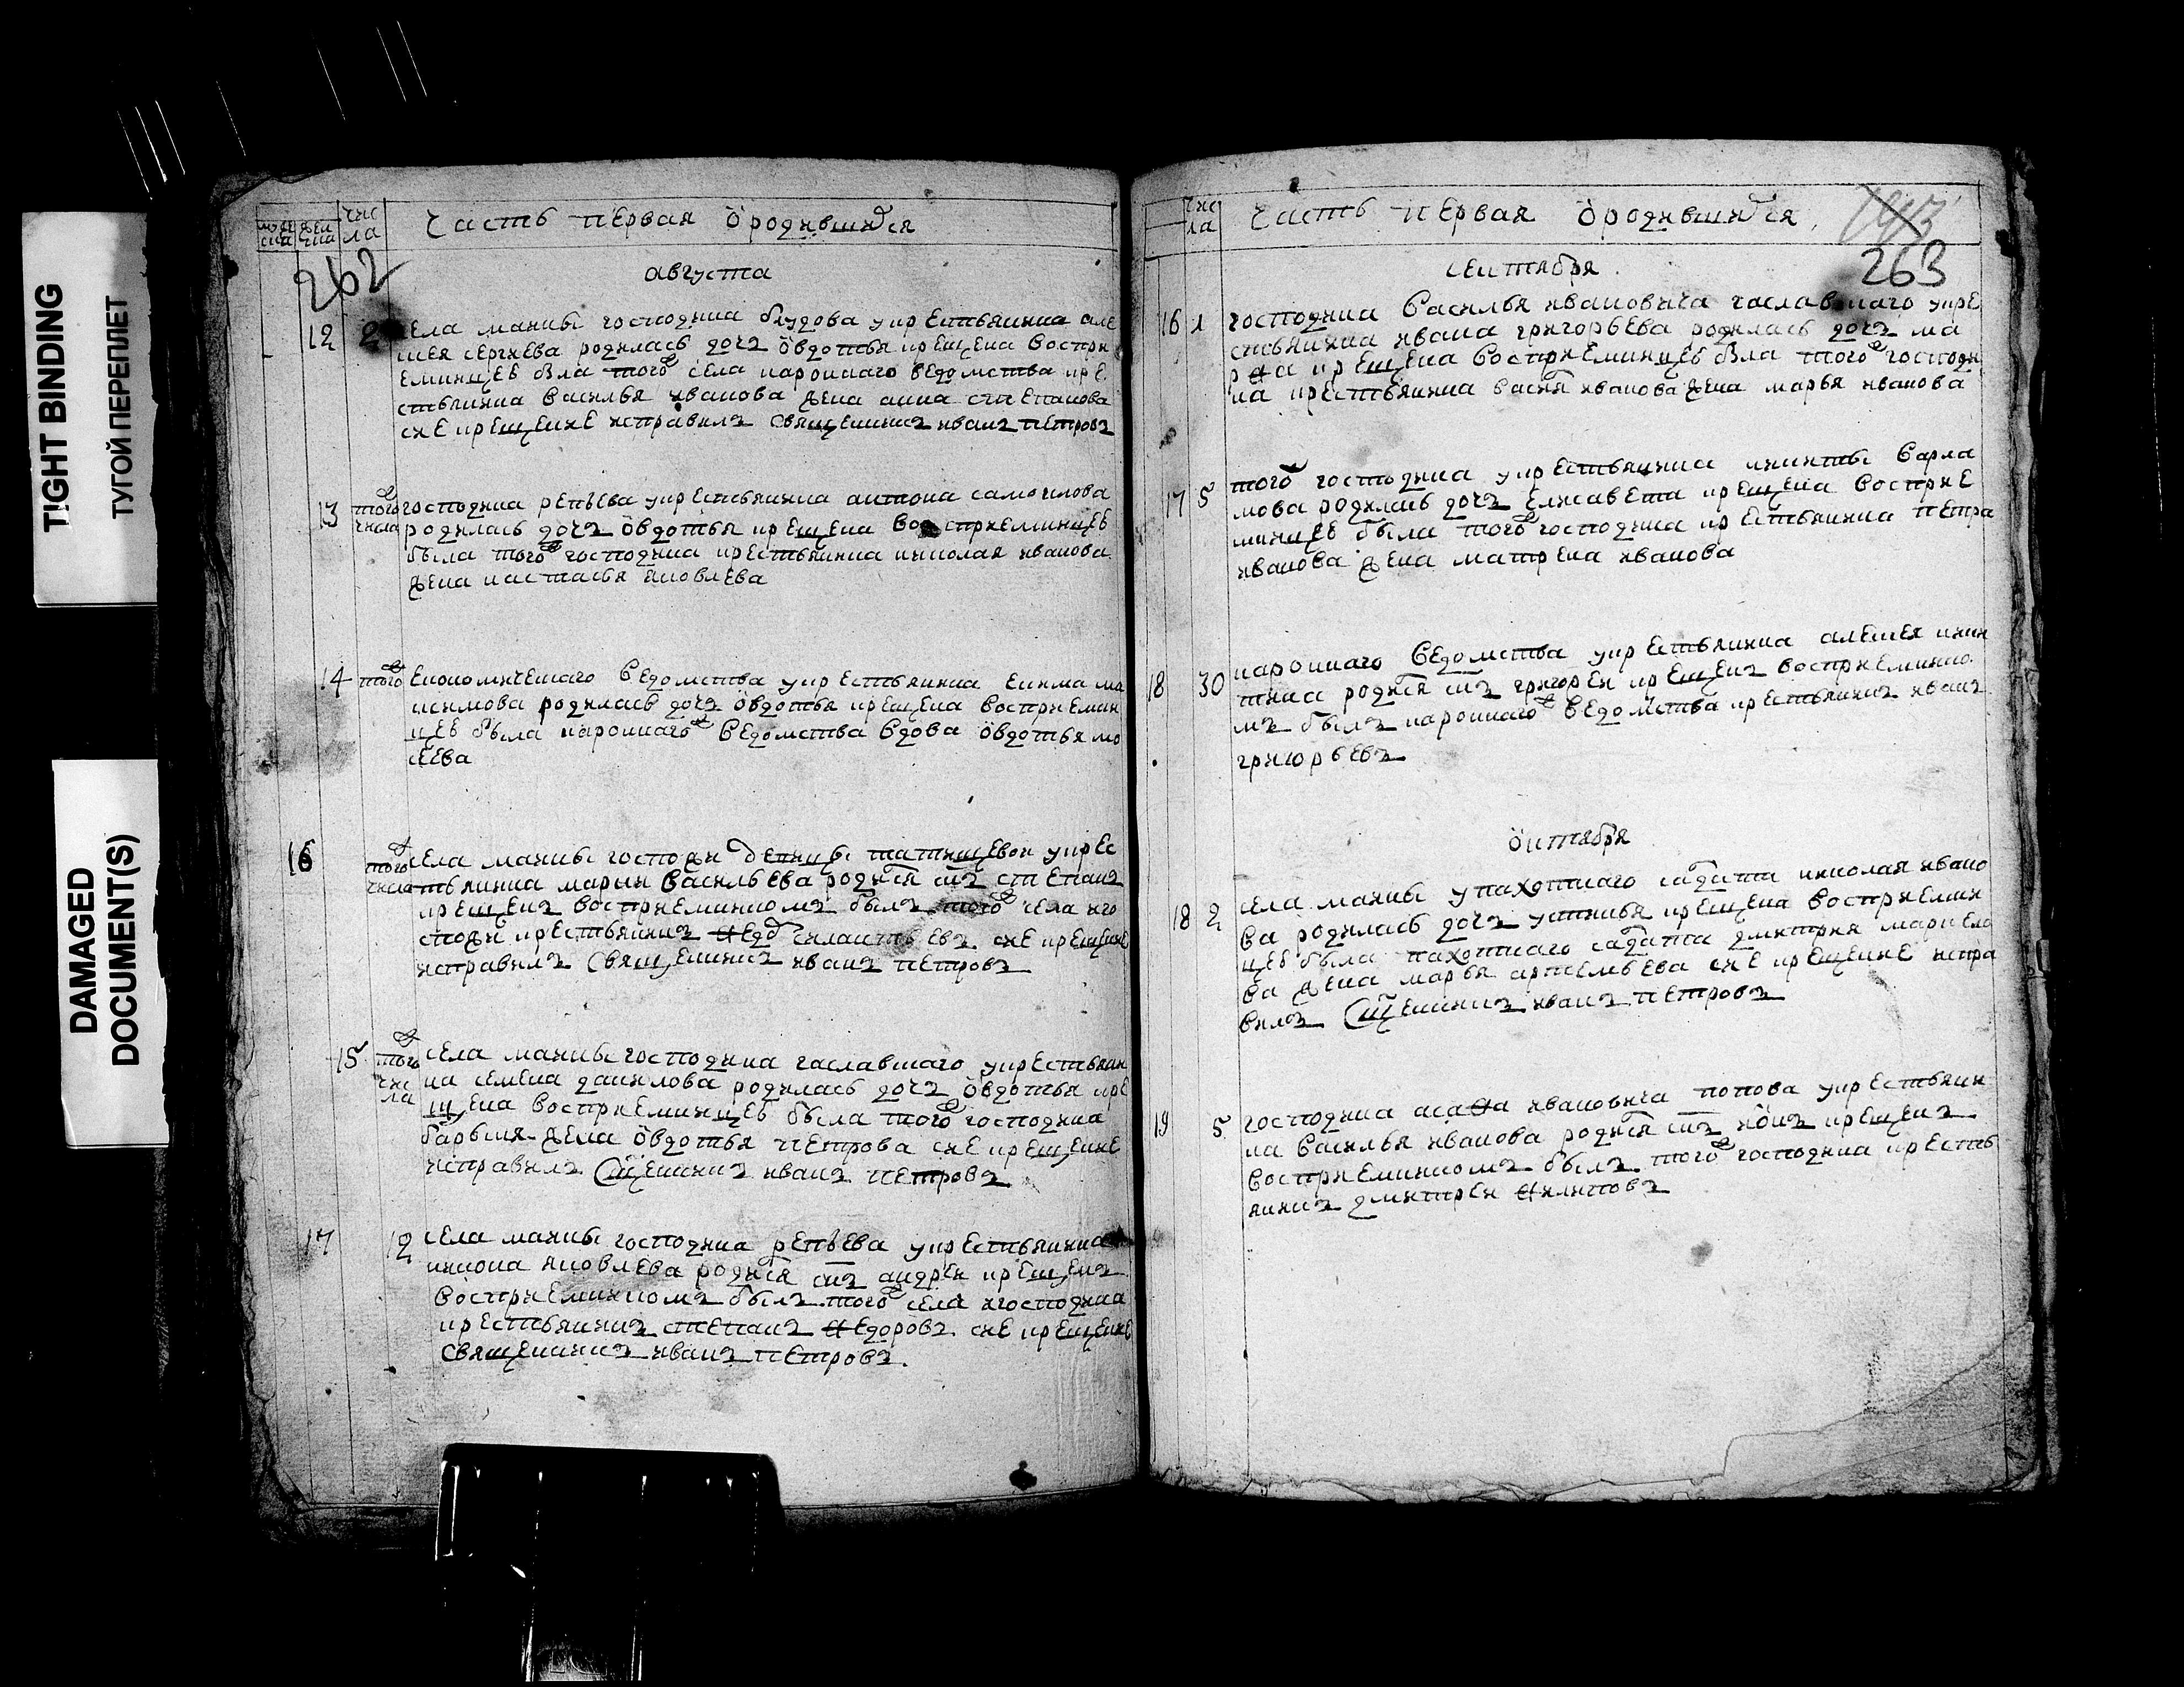 TIGHT BINDING
ТУГОЙ ПЕРЕПЛЕТ
DAMAGED
DOCUMENT(S)
чис
ла
Часть первая о родившихся
262
августа
12 2 села маины господина блудова у крестьянина але
ксея сергѣева родилась дочь овдотья крещена востри
емницею была тогоже села коронного ведомства кре
стьянина василья иванова жена анна степанова
сие крещение исправилъ священникъ иванъ петровъ
13 тогож числа господина репьева у крестьянина антона самоилова
родилась дочь овдотья крещена восприемницею
была тогож господина крестьянина николая иванова
жена настасья яковлева
14 тогож економическаго ведомства у крестьянина екима ма
ксимова родилась дочь овдотья крещена восприемни
цею была коронного ведомства вдова овдотья мо
сеева
16 тогож числа села маины госпожи девицы татищевои у крес
тьянина марки васильева родился сынъ степанъ
крещенъ восприемникомъ былъ тогож села и го
спожи крестьянинъ федор силантьевъ сие крещение
исправилъ священникъ иванъ петровъ
15 тогож числа села маины господина чаславского у крестьяни
на семена данилова родилась дочь овдотья кре
щена восприемницею была тогож господина
жена овдотья петрова сие крещение
исправилъ священникъ иванъ петровъ
17 12 села маины господина репьева у крестьянина
никона яковлева родился сынъ андреи крещенъ
восприемникомъ былъ тогож села и господина
крестьянинъ степанъ федоровъ сие крещение
священникъ иванъ петровъ
чис
ла
Часть первая о родившихся
263
сентября
16 1 господина василья ивановича чаславского у кре
стьянина ивана григорьева родилась дочь ма
рфа крещена восприемницею была тогож господи
на крестьянина василя иванова жена марья иванова
17 5 того господина у крестьянина никиты варла
мова родилась дочь елисавета крещена восприе
мницею была тогож господина крестьянина петра
иванова жена матрена иванова
18 30 коронного ведомства у крестьянина алексея ники
тина родился сынъ григореи крещенъ восприемнико
мъ былъ коронного ведомства крестьянинъ иванъ
григорьевъ
октября
18 2 села маины у пахотного салдата николая ивано
ва родилась дочь устинья крещена восприемни
цею была пахотного салдата дмитрия маркело
ва жена марья артемьева сие крещение испра
вилъ священникъ иванъ петровъ
19 5 господина асафа ивановича попова у крестьяни
на василья иванова родился сынъ крещенъ
восприемникомъ былъ тогож господина кресть
янинъ дмитреи филиповъ